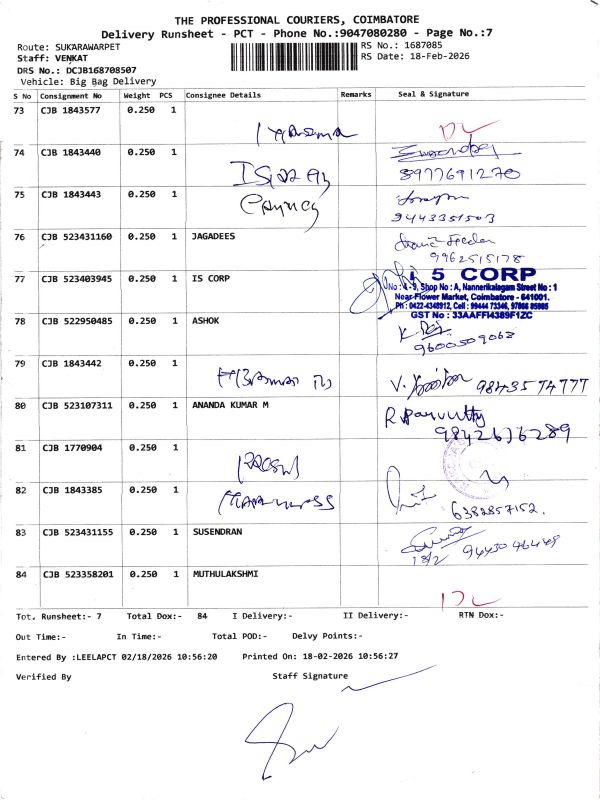 THE PROFESSIONAL COURIERS, COIMBATORE
Delivery Runsheet - PCT - Phone No.:9047080280 - Page No.:7
Route: SUKARAWARPET
RS No.: 1687085
Staff: VENKAT
RS Date: 18-Feb-2026
DRS No.: DCJB168708507
Vehicle: Big Bag Delivery
S No Consignment No Weight PCS Consignee Details Remarks Seal & Signature
73 CJB 1843577 0.250 1
74 CJB 1843440 0.250 1
8977691270
75 CJB 1843443 0.250 1
9443351503
76 CJB 523431160 0.250 1 JAGADEES
9962515178
77 CJB 523403945 0.250 1 IS CORP
5 CORP
No : 4-9, Shop No : A, Nannerikalagam Street No : 1
Near Flower Market, Coimbatore - 641001.
Ph : 0422-4348912, Cell : 99444 73346, 97866 85985
GST No : 33AAFFI4389F1ZC
78 CJB 522950485 0.250 1 ASHOK
9600509063
79 CJB 1843442 0.250 1
9843574777
80 CJB 523107311 0.250 1 ANANDA KUMAR M
9842676289
81 CJB 1770904 0.250 1
82 CJB 1843385 0.250 1
6382857152.
83 CJB 523431155 0.250 1 SUSENDRAN
18/2
84 CJB 523358201 0.250 1 MUTHULAKSHMI
Tot. Runsheet:- 7 Total Dox:- 84 I Delivery:- II Delivery:- RTN Dox:-
Out Time:- In Time:- Total POD:- Delvy Points:-
Entered By :LEELAPCT 02/18/2026 10:56:20 Printed On: 18-02-2026 10:56:27
Verified By Staff Signature